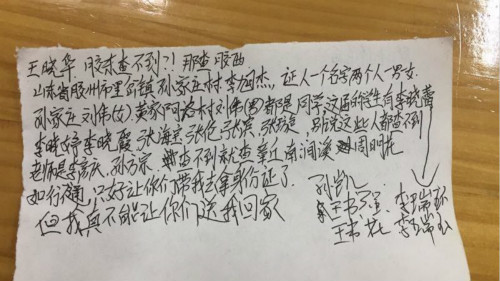 王晓华 胶东查不到?! 那查胶西
山东省胶州市里岔镇孙家庄村李旭杰, 证人一个名字两个人一男一女.
孙家庄刘伟(女)黄家阿洛村刘伟(男)都是同学这届的学生有李晓蕾
李晓婷李晓霞张海宝张伦张宾张璇, 别说这些人都查不到
老师是李高欣、孙方宗 查不到就查辛近南涧溪 周明花
如行通, 只好让你们带我去拿身份证了.
但我真不能让你们送我回家
孙凯
王书 李瑞环
王书花 李瑞